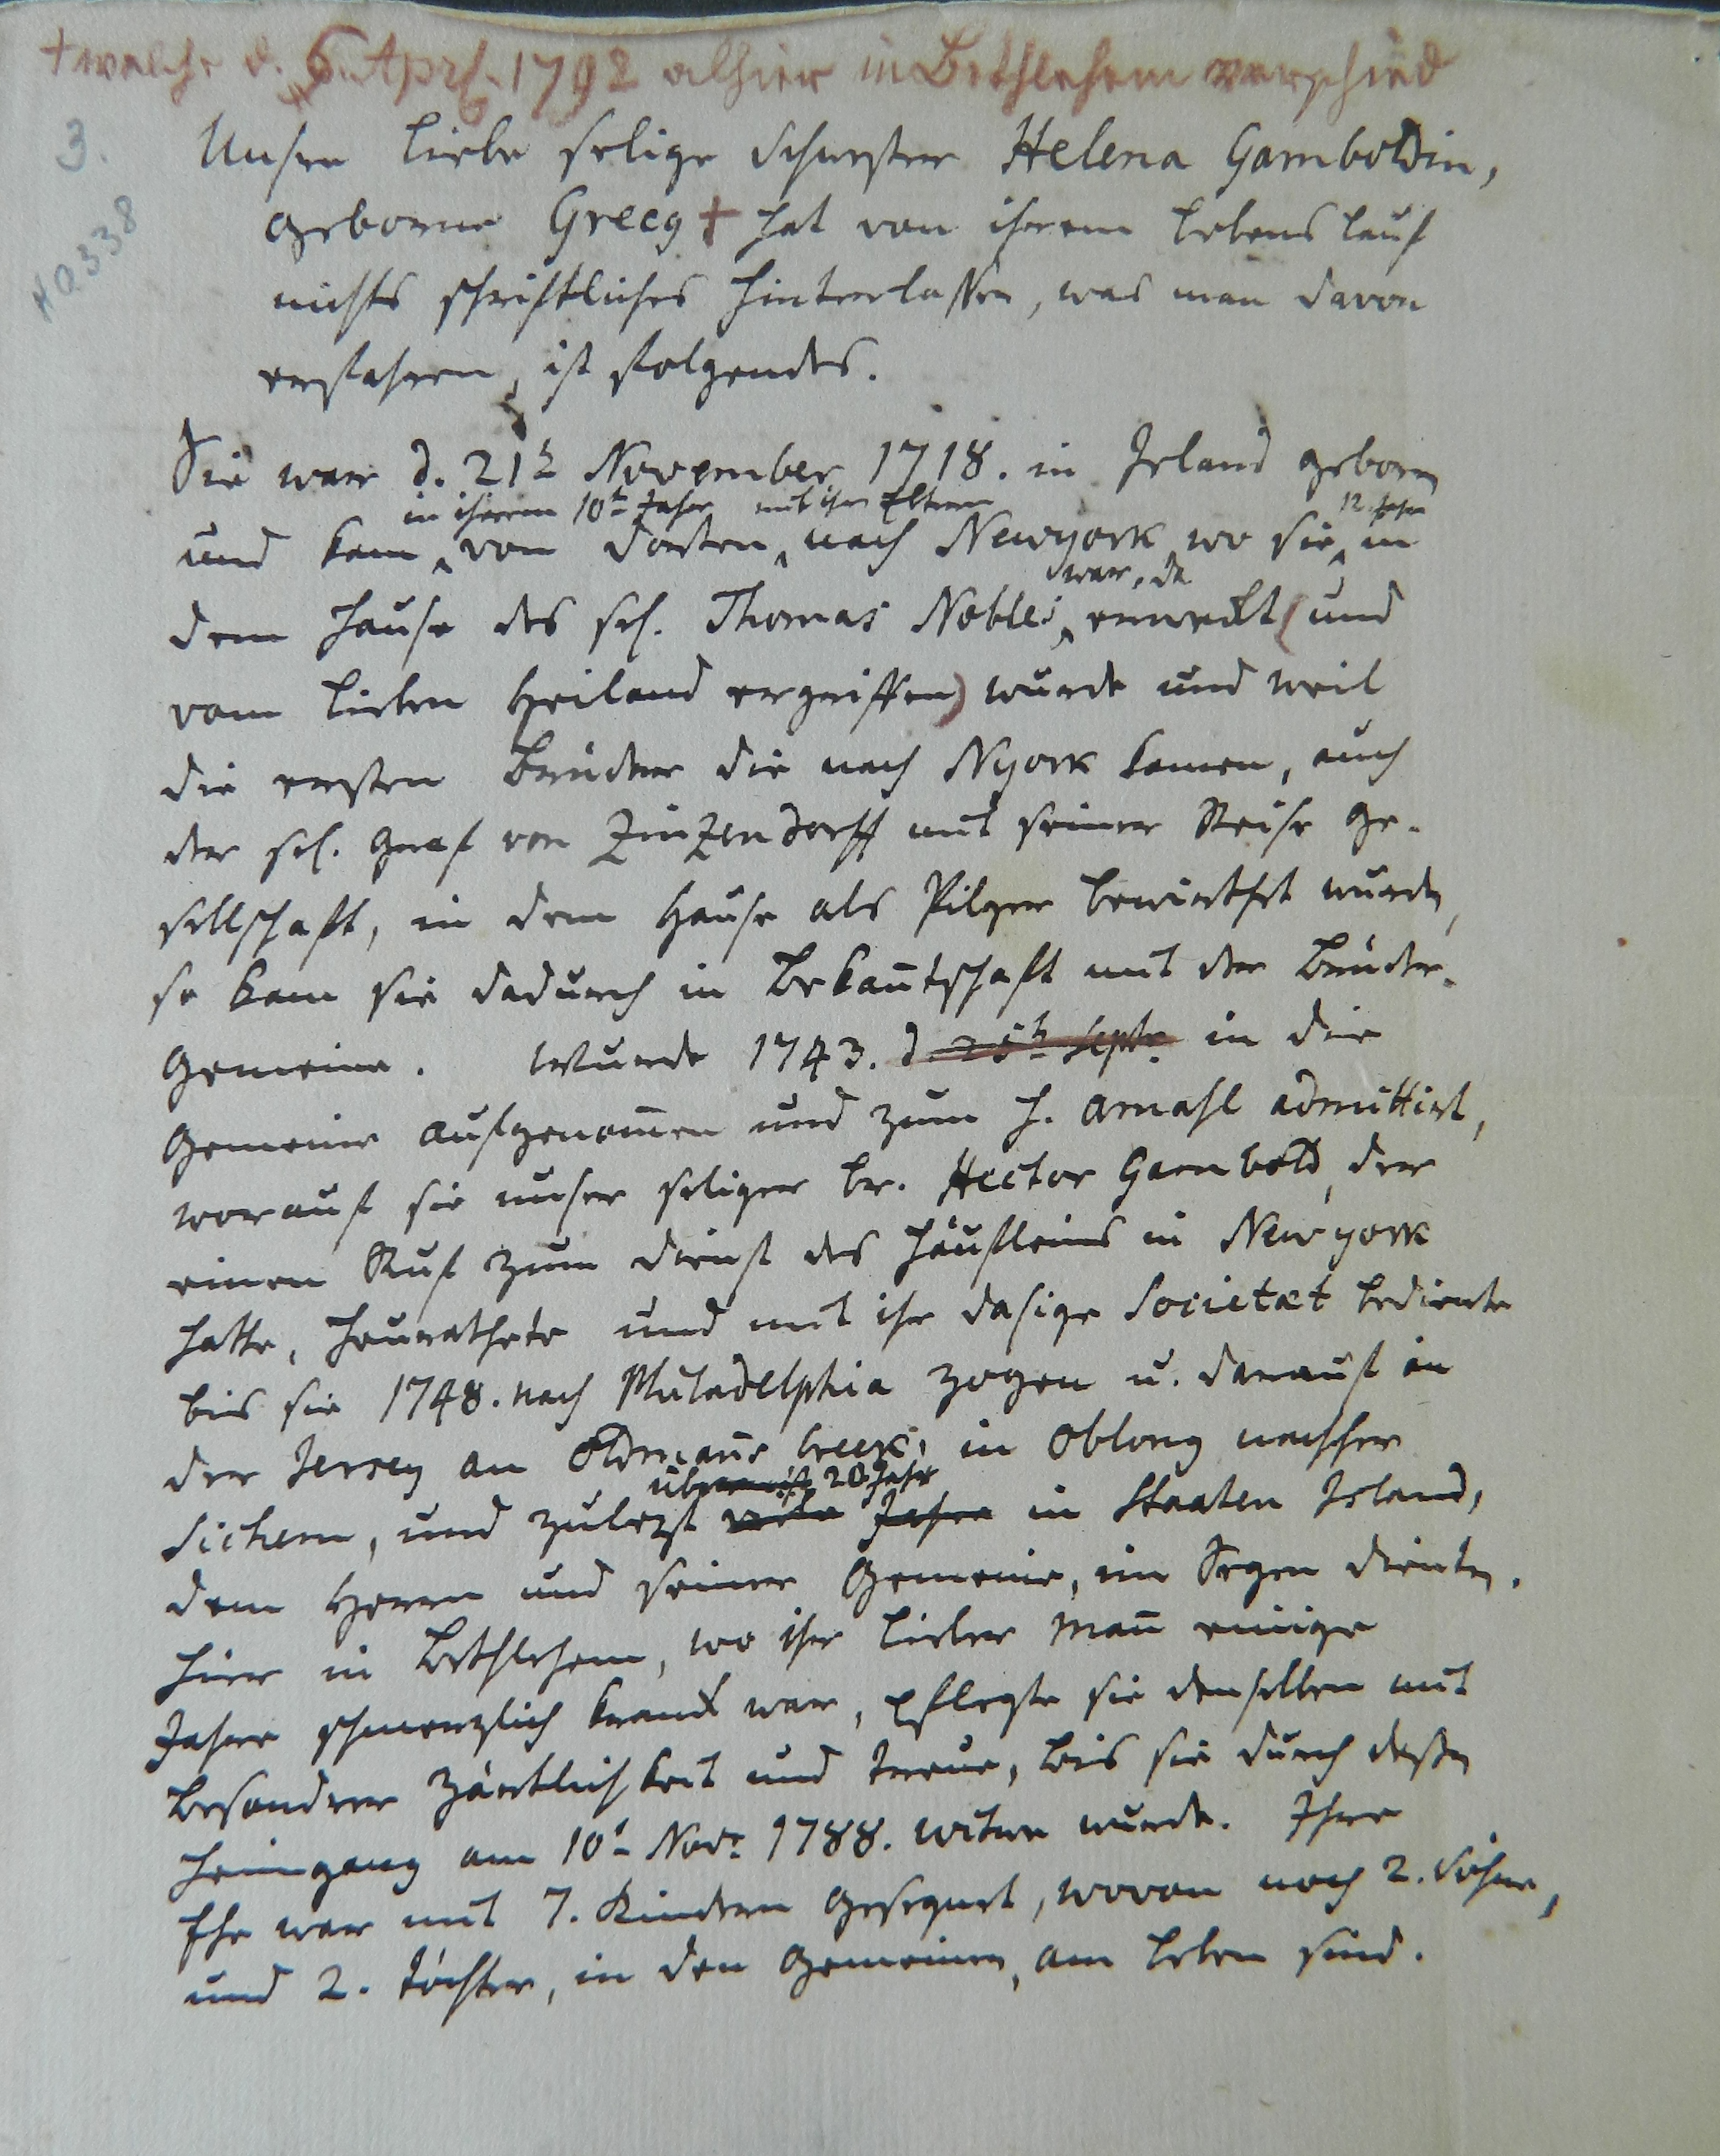 + welche d. 6. Apr. 1792 alhier in Bethlehem verschied
3.
H0338
Unsre liebe selige Schwester Helena Gamboldin,
geborne Greeg + hat von ihrem Lebens lauf
nichts schriftliches hinterlassen, was man davon
erfahren, ist folgendes.
Sie war d. 21t November 1718. in Irland geborn
in ihrem 10t Jahr mit ihren Eltern 12 Jahr
und kam von dorten nach Newyork wo sie in
war, da
dem Hause des sel. Thomas Nobles erweckt (und
vom lieben Heiland ergriffen) wurde und weil
die ersten Brüder die nach NYork kamen, auch
der sel. Graf von Zinzendorff mit seiner Reise Ge-
sellschaft, in dem Hause als Pilger bewirthet wurden,
so kam sie dadurch in Bekañtschaft mit der Brüder-
Gemeine. Wurde 1743. d. 25t Septr in die
Gemeine aufgenom̄en und zum h. Amahl admittirt,
worauf sie unser seliger Br. Hector Gambold, der
einen Ruf zum Dienst des Häufleins in Newyork
hatte, heurathete und mit ihr dasige Societæt bediente
bis sie 1748. nach Philadelphia zogen u. darauf in
der Jersey an Oldmañs Creek, in Oblong nachher
über 20 Jahr
Sichem, und zulezt viele Jahre in Staaten Island,
dem Herrn und seiner Gemeine, im Segen dienten.
Hier in Bethlehem, wo ihr lieber Mañ einige
Jahre schmerzlich krank war, pflegte sie denselben mit
besondrer Zärtlichkeit und Treue, bis sie durch deßen
Heimgang am 10t Novr 1788. Witwe wurde. Ihre
Ehe war mit 7. Kindern gesegnet, wovon noch 2. Söhne,
und 2. Töchter, in den Gemeinen, am Leben sind.